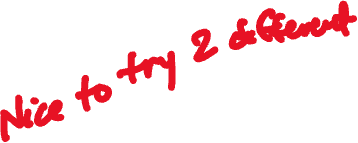 Nice to try 2 different